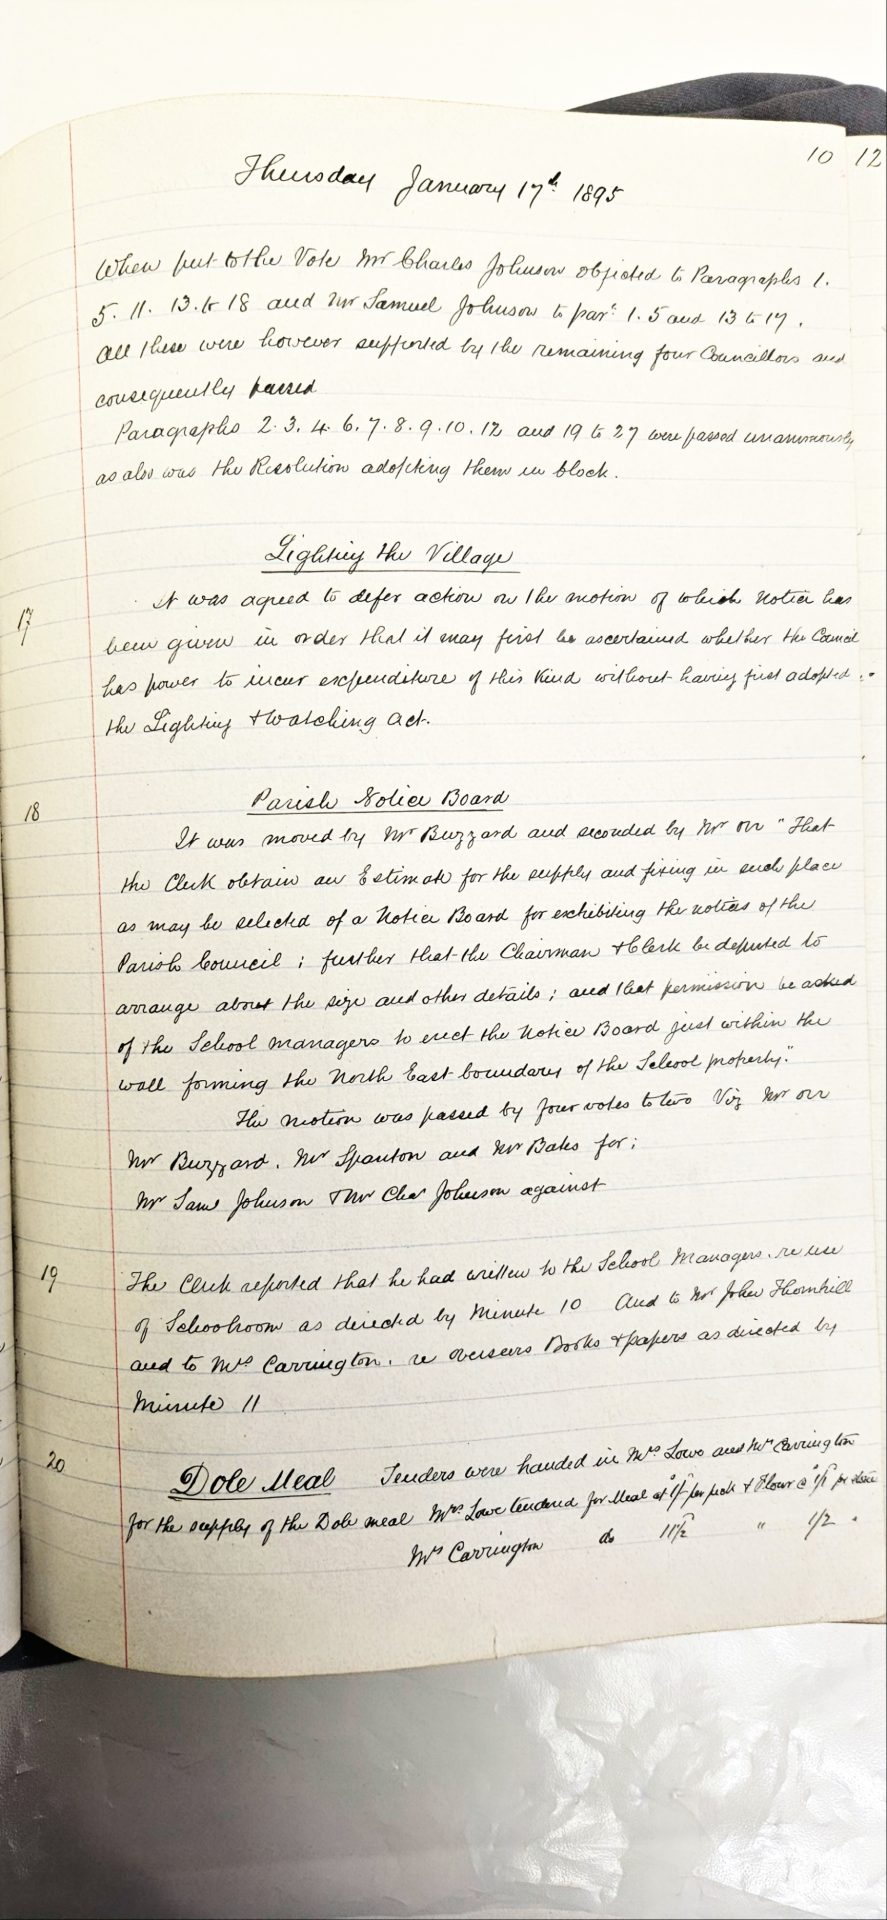 10 12
Thursday January 17th 1895
When put to the Vote Mr Charles Johnson objected to Paragraphs 1.
5. 11. 13. to 18 and Mr Samuel Johnson to pars 1. 5 and 13 to 17.
All these were however supported by the remaining four Councillors and
consequently passed
Paragraphs 2. 3. 4. 6. 7. 8. 9. 10. 12 and 19 to 27 were passed unanimously
as also was the Resolution adopting them in block.
Lighting the Village
17 It was agreed to defer action on the motion of which Notice has
been given in order that it may first be ascertained whether the Council
has power to incur expenditure of this kind without having first adopted
the Lighting & Watching Act.
18 Parish Notice Board
It was moved by Mr Buzzard and seconded by Mr Orr "That
the Clerk obtain an Estimate for the supply and fixing in such place
as may be selected of a Notice Board for exhibiting the notices of the
Parish Council; further that the Chairman & Clerk be deputed to
arrange about the size and other details; and that permission be asked
of the School managers to erect the Notice Board just within the
wall forming the North East boundary of the School property."
The motion was passed by four votes to two Viz Mr Orr
Mr Buzzard, Mr Spanton and Mr Bates for;
Mr Saml Johnson & Mr Chas Johnson against
19 The Clerk reported that he had written to the School Managers. re use
of Schoolroom as directed by Minute 10 And to Mr John Thornhill
and to Mrs Carrington. re overseers Books & papers as directed by
Minute 11
20 Dole Meal Tenders were handed in Mrs Lowe and Mrs Carrington
for the supply of the Dole meal Mrs Lowe tendered for Meal at 1/- per peck & Flour @ 1/1 per
Mrs Carrington do 11½ " 1/2 .